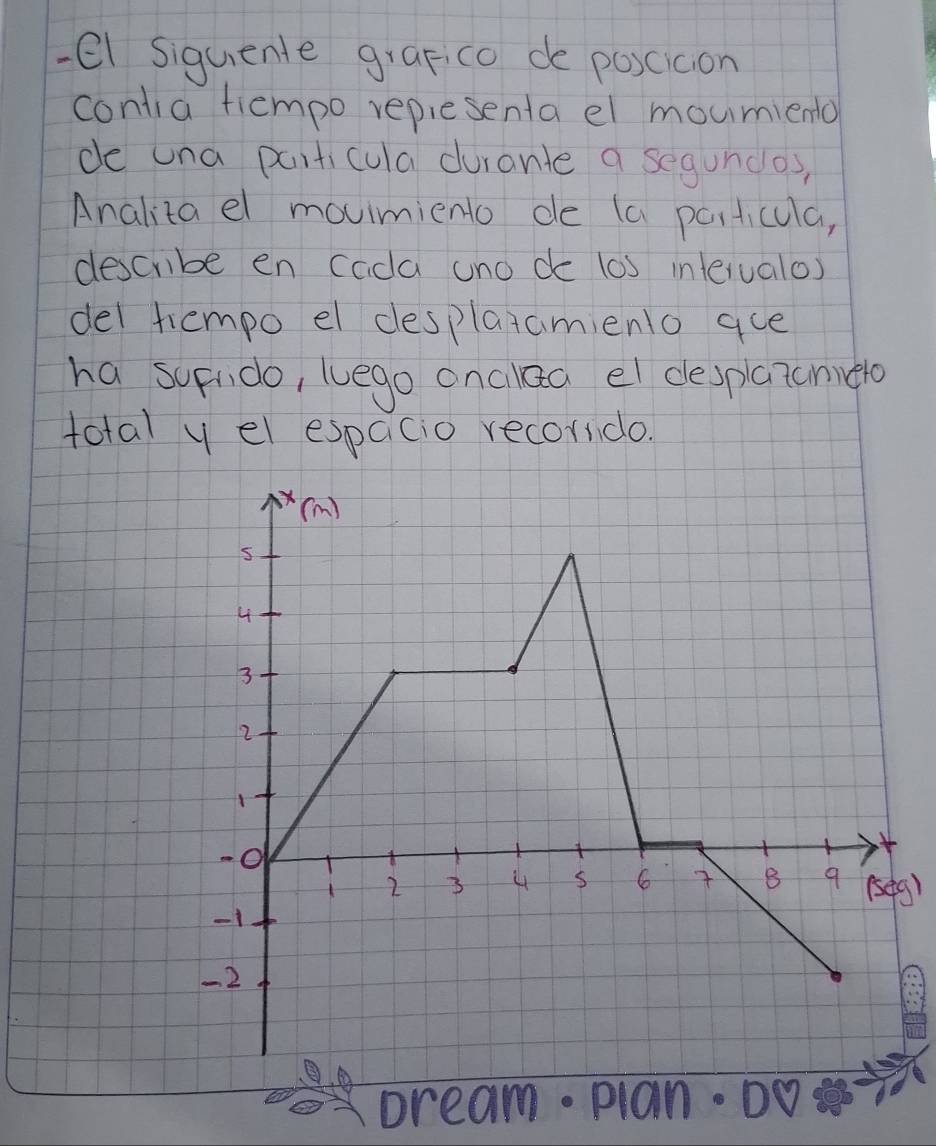 -El siguiente grafico de poscicion
contra tiempo representa el movimiento
de una particula durante 9 segundos,
Analiza el movimiento de la particula,
describe en cada uno de los intervalos
del tiempo el desplazamiento que
ha sufrido, luego analiza el desplazamieto
total y el espacio recorrido.
x (m)
5
4
3
2
1
-0
-1
-2
1 2 3 4 5 6 7 8 9 t
(seg)
Dream · Plan · DO